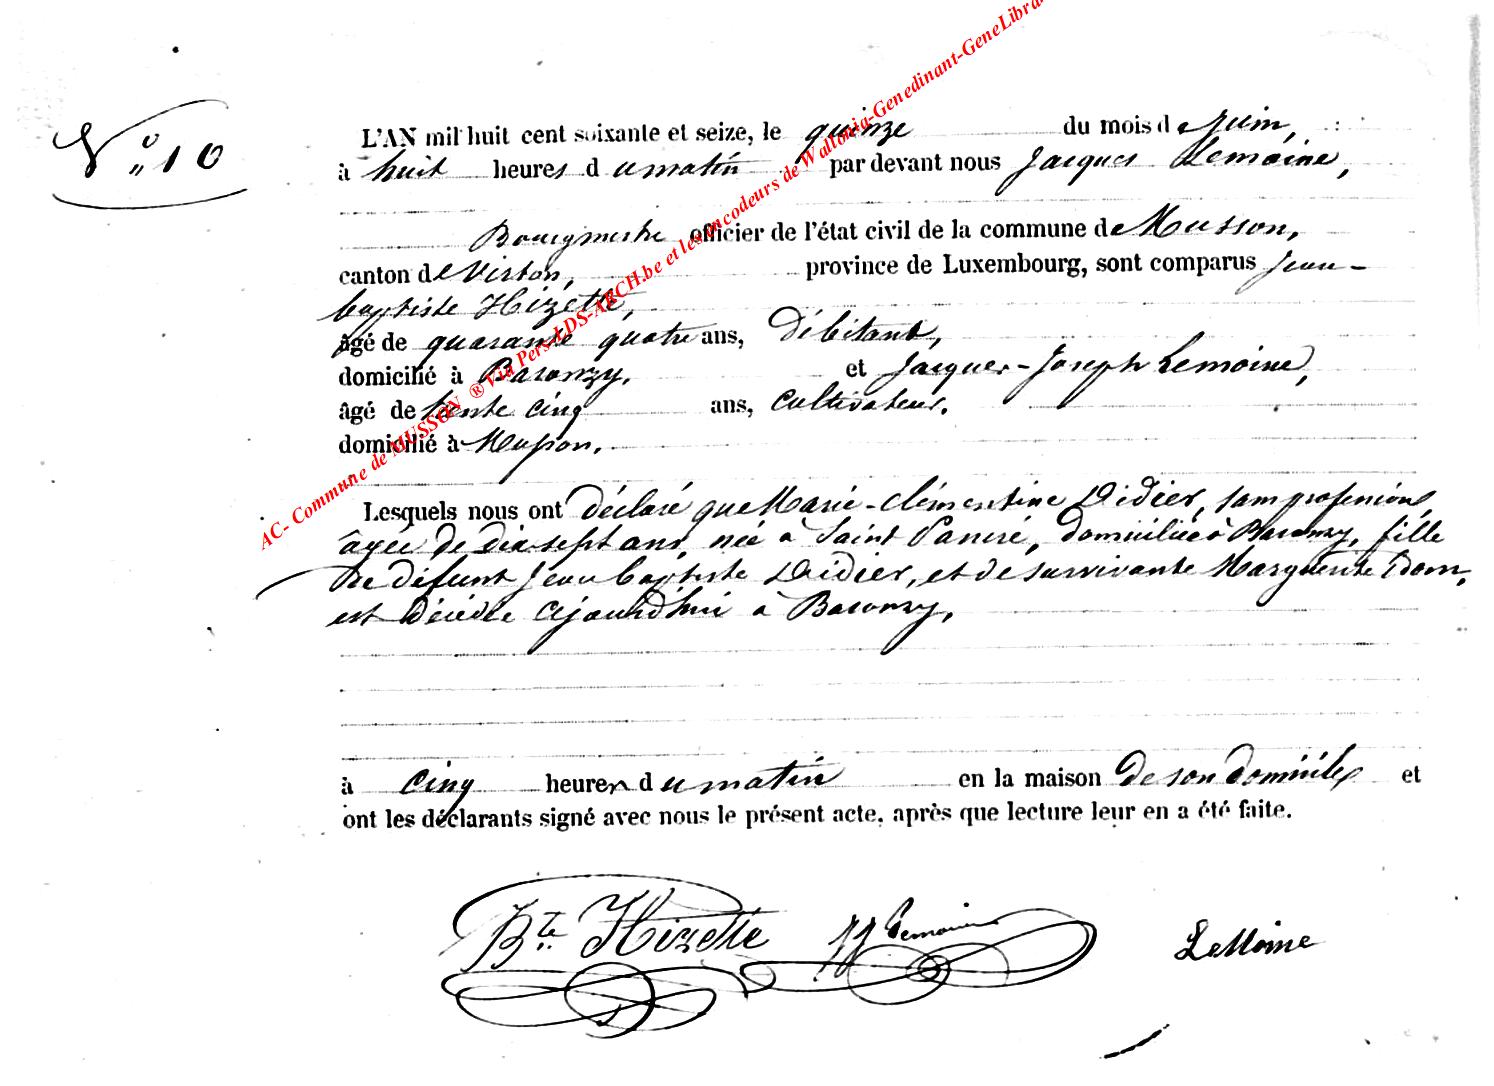 N° 10
L'AN mil huit cent soixante et seize, le quinze du mois de juin,
à huit heures du matin par devant nous Jacques Lemoine,
Bourgmestre officier de l'état civil de la commune de Musson,
canton de Virton, province de Luxembourg, sont comparus Jean-
baptiste Hizette,
âgé de quarante quatre ans, Débitant,
domicilié à Baranzy, et Jacques-Joseph Lemoine,
âgé de trente cinq ans, cultivateur,
domicilié à Musson.
Lesquels nous ont déclaré que Marie-Clémentine Didier, sans profession,
âgée de dix sept ans, née à Saint Pancré, domiciliée à Baranzy, fille
de défunt Jean baptiste Didier, et de survivante Marguerite
est décédée cejourd'hui à Baranzy,
à cinq heures du matin en la maison de son domicile et
ont les déclarants signé avec nous le présent acte, après que lecture leur en a été faite.
Bte Hizette JJ Lemoine LeMoine
AC- Commune de MUSSON ® Via Pers-LDS-ARCH.be et les encodeurs de Wallonia-Genedinant-GeneLibra